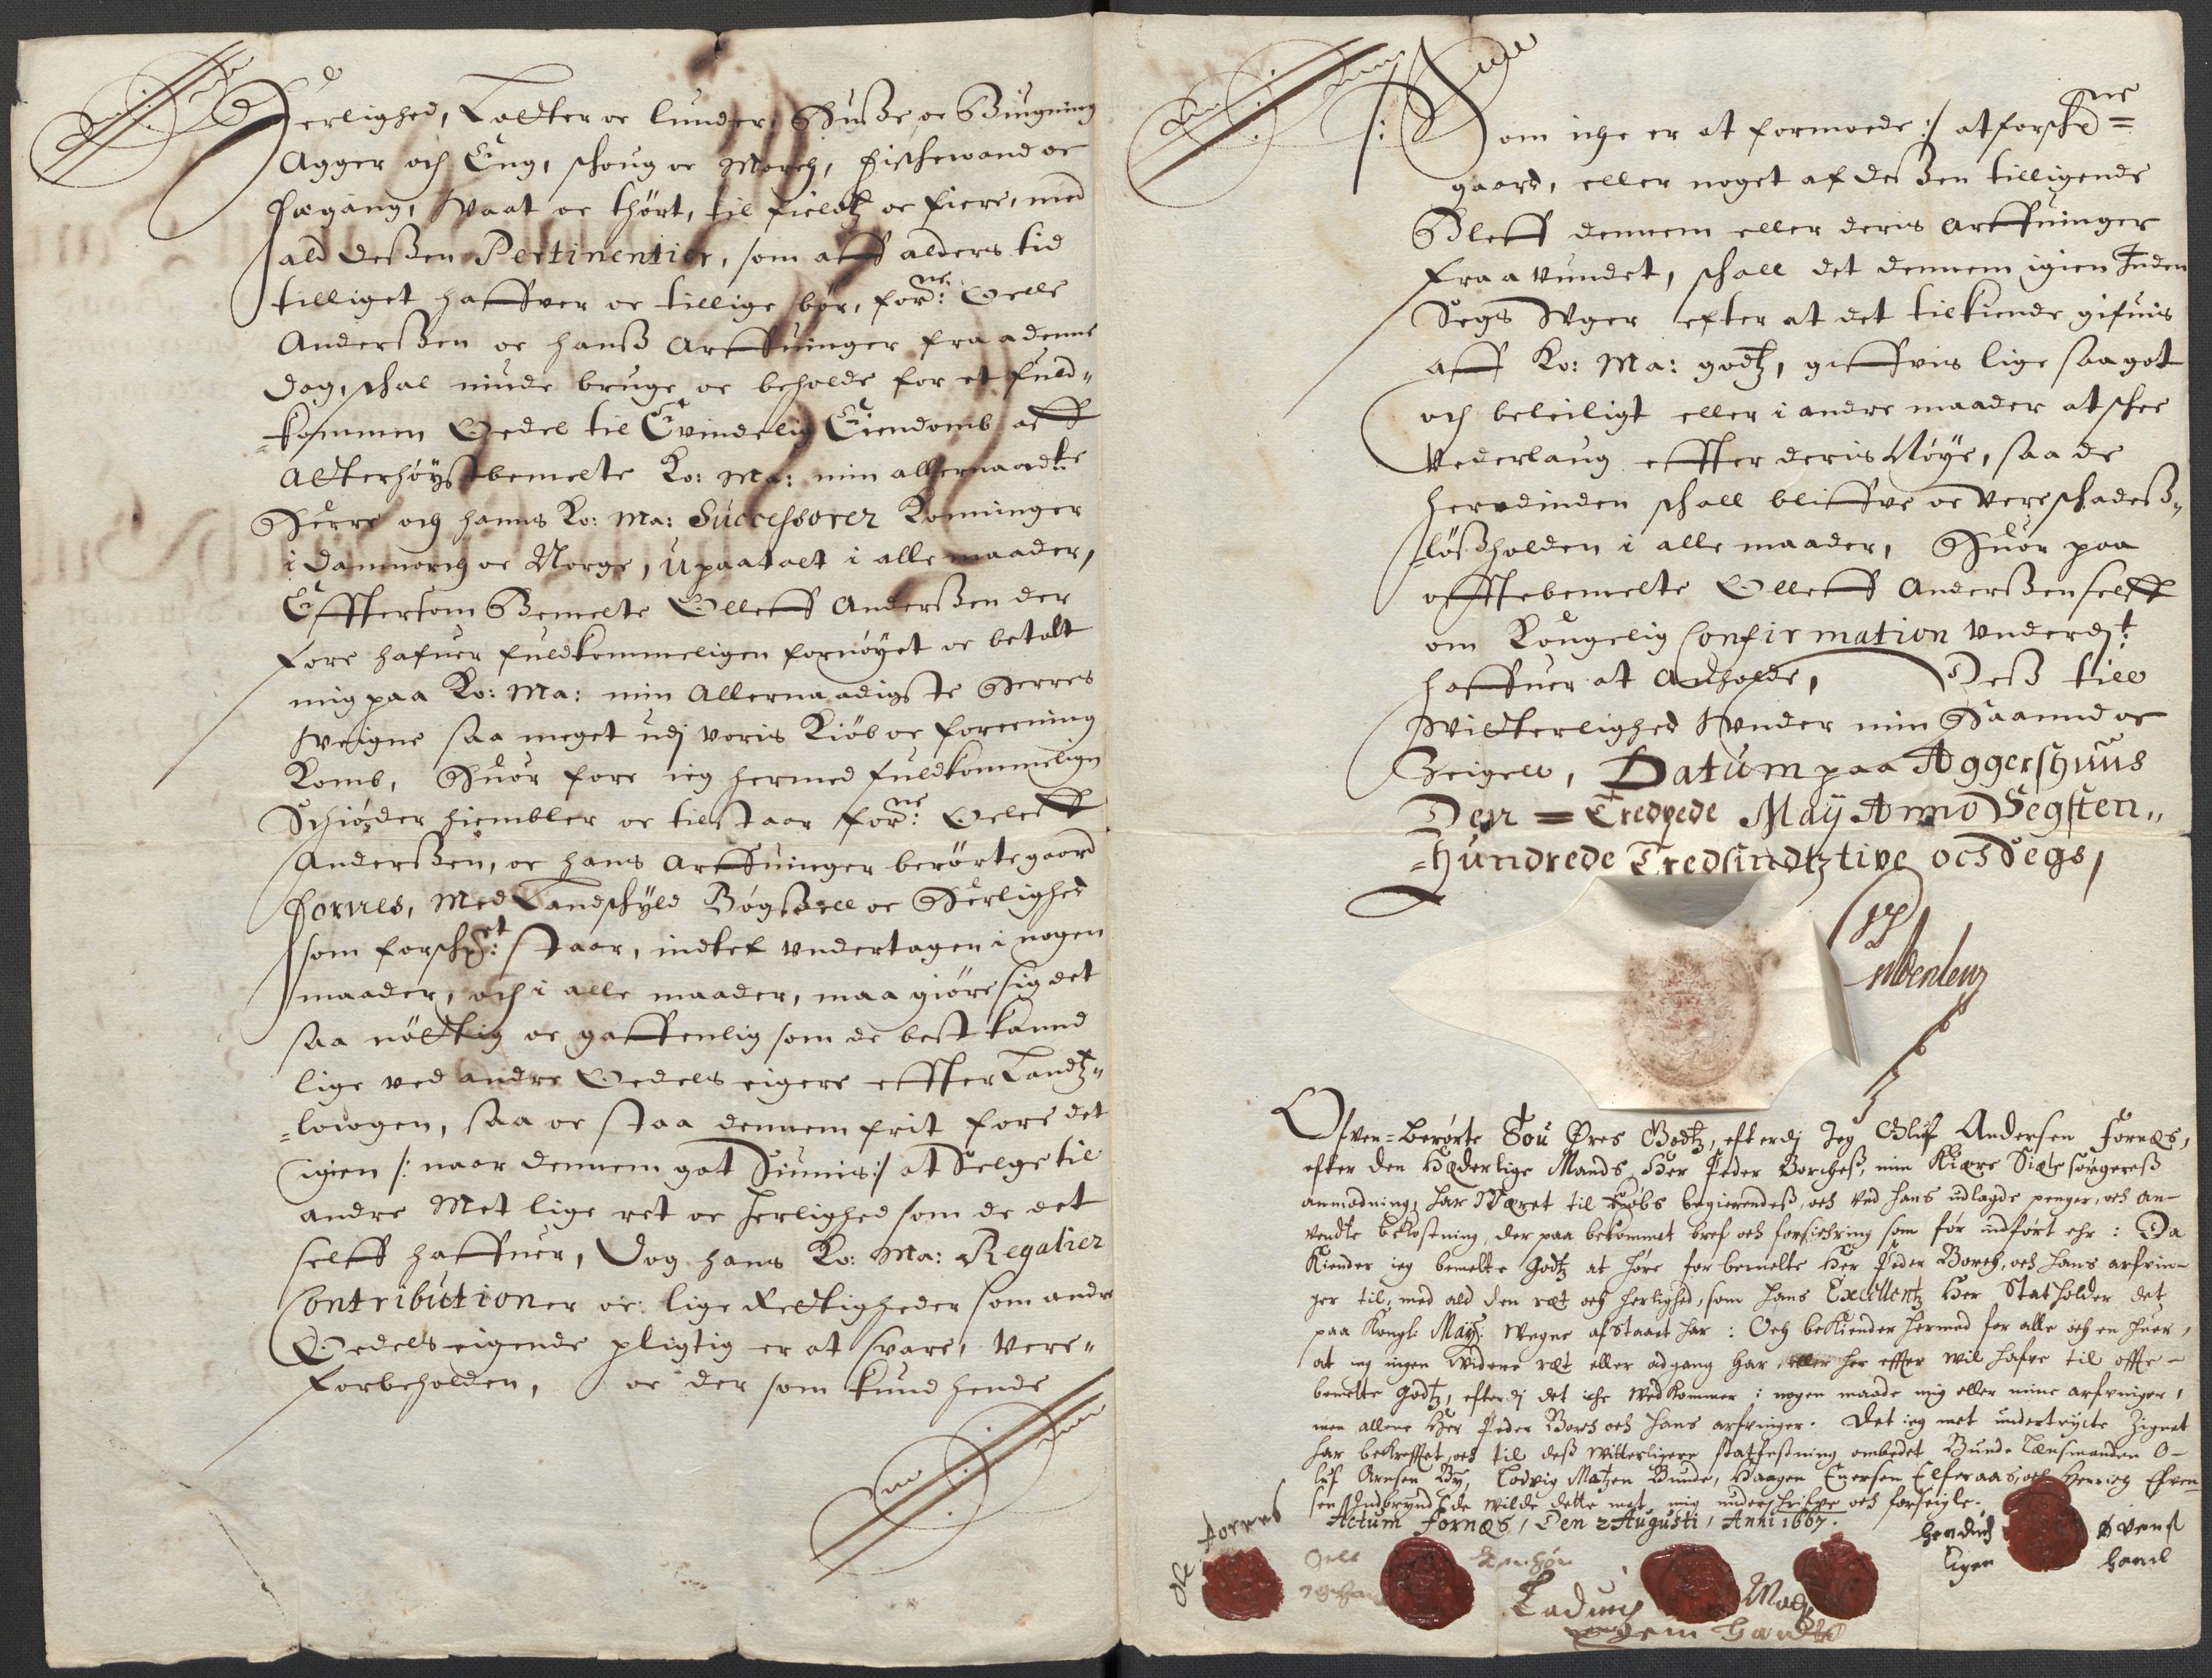 Herlighed, Lotter oc lunder, Huusze oc Bůgning
Agger och Eng, schoug oc March, Fischewand oc
Fægang, Waat oc thørt, til fieldtz oc fiere, med
ald deszen Pertinentier, som aff alders tid
tilliget haffver oc tillige bør, for:ne Oelle
Anderszen oc hansz Arffuinger fra a denne
dag, schal niude bruge oc beholde for et fuld„
=kommen Oedel til Evindelig Eiendomb aff
Alterhøystbemelte Ko: Ma: min allernaadte
Herre och hanns Ko: Ma: Successorer Konninger
i Dannmarch oc Norge, upaatalt i alle maader,
Efftersom Bemelte Olleff Anderszen der
fore hafuer fuldkommeligen fornøyet oc betalt
mig paa Ko: Ma: min Allernaadigste Herres
Weigne saa meget udj voris Kiøb oc foreening
Komb, Huor fore ieg hermed fuldkommelign
Schiøder hiembler oc tilstaar for:ne Oeleff
Anderszen, oc hans Arffuinger berørte gaard
Fornes, Med Landschyld Bøgszell oc Herlighed
som forsch:et staar, indtet undertagen i nogen
maader, och i alle maader, maa giøre sig det
saa nöttig oc gaffenlig som de best kannd
lige ved andre Oedels eigere effter Landtz„
=lowgen, saa oc staa dennem frit fore det
igien /: naar dennem got Siunis :/ at Selge til
andre Met lige ret oc herlighed som de det
selff haffuer, Dog hans Ko: Ma: Regalier
Contributioner oc lige Rettigheder som andre
Oedels eigende pligtig er at svare, vere„
forbeholden, oc der som kund hende
/: Som iche er at formoede :/ at forsch:ne=
gaard, eller noget af deszen tilligende
Bleff dennem eller deris Arffuinger
fra a vundet, schall det dennem igien Inden
Segs Uger efter at det tilkiende gifuis
aff Ko: Ma: godtz, giffvis lige saa got
och beleiligt eller i andre maader at schee
Vederlaug effter deris Nøye, saa de
herudinden schall bliffve oc vere schadesz„
=lösz holden i alle maader, Huor paa
offtebemelte Olleff Anderszen selff
om Kongelig Confirmation Underd:t
haffuer at Anholde, Desz till
Vitterlighed Under min Haannd oc
Zeigell, Datum paa Aggershuus
Den = Tredyede Maÿ Anno Segsten„
=hundrede Tredsindtztive och Segs,
Ofven=berørte Tou Øres Godtz, efterdj Jeg Oluf Andersen Fornæs,
efter den Hæderlige Mands Her Peder Borchesz, min Kiære Siælesørgeresz
anmodning, har Været til Kiøbs begierendesz, och ved hans udlagde penger, och an-
vendte bekostning, der paa bekommet bref och forsichring som før indført ehr : Da
Kiender ieg bemelte Godtz at høre for bemelte Her Peder Borch, och hans arfvin-
ger til, med ald den ræt och herlighed, som hans Excellentz Her Statholder det
paa Kongl: Maÿtz: Vegne afstaaet har : Och bekiender hermed for alle och en huer,
at ieg ingen videre ræt eller adgang har eller her effter wil hafve til offte-
bemelte Godtz, efterdj det iche vedkommer i nogen maade mig eller mine arfvinger,
men allene Her Peder Borch och hans arfvinger. Det ieg met undertrÿcte Zignet
har bekrefftet, och til desz vitterligere statfestning ombedet Bunde Lænsmanden O-
luf Arnsen Bÿ, Lodvig Matzen Bunde, Haagen Enersen Elferaas, och Henrich Efven-
sen Indbrÿnd, de wilde dette met mig underschrifve och forseigle.
Actum Fornæs, Den 2 Augusti, Anni 1667.
Fornes
Oell
Ladwig Matz
egen Handt
Hendrich Øvens
Egen Hand